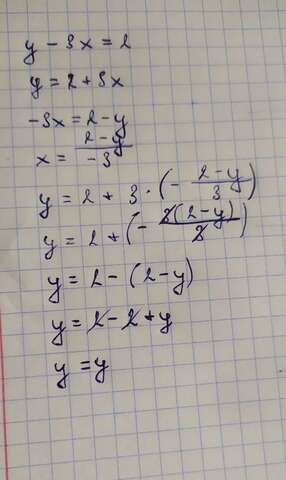 y - 3x = 2
y = 2 + 3x
-3x = 2 - y
x = \frac{2-y}{-3}
y = 2 + 3 · (- \frac{2-y}{3})
y = 2 + (- \frac{3(2-y)}{3})
y = 2 - (2 - y)
y = 2 - 2 + y
y = y